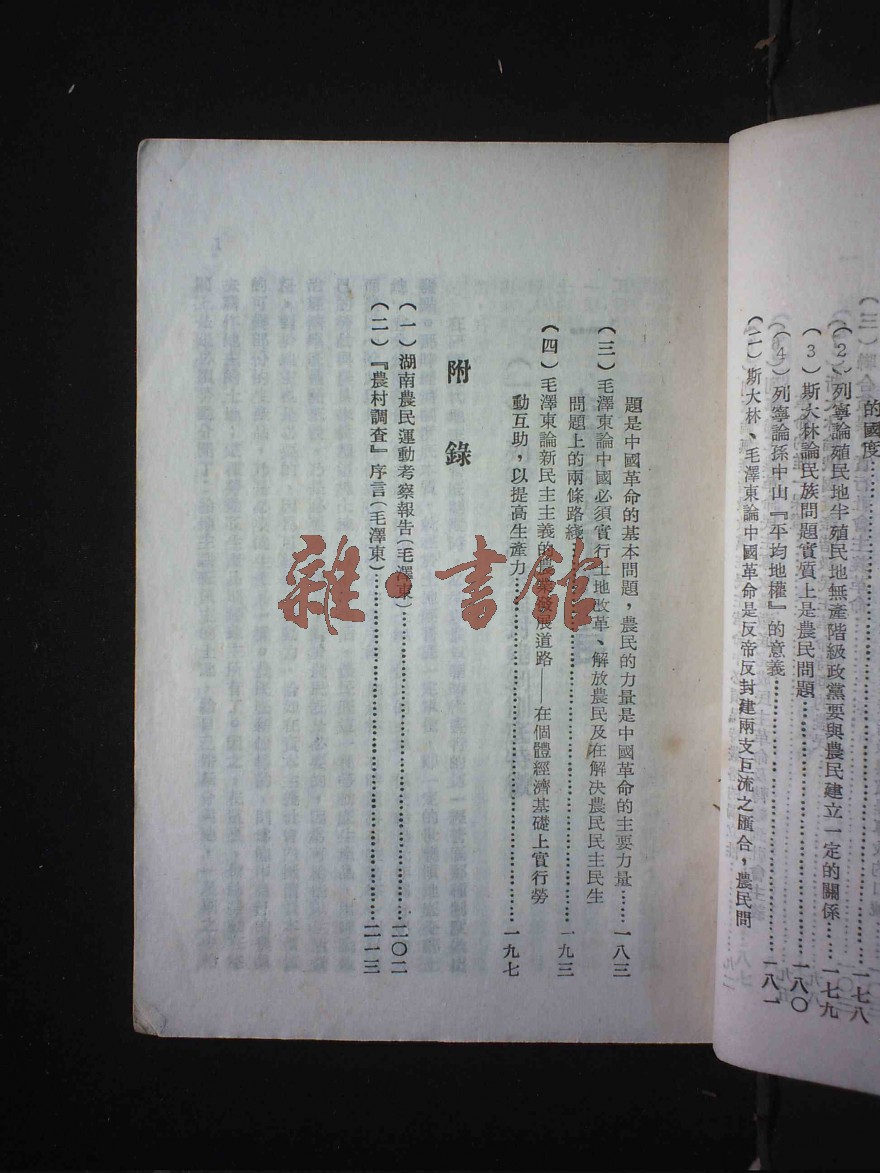 的國度……一七八
（2）列寧論殖民地半殖民地無產階級政黨要與農民建立一定的關係……一七九
（3）斯大林論民族問題實質上是農民問題……一八〇
（4）列寧論孫中山『平均地權』的意義……一八一
（二）斯大林、毛澤東論中國革命是反帝反封建兩支巨流之匯合，農民問
題是中國革命的基本問題，農民的力量是中國革命的主要力量……一八三
（三）毛澤東論中國必須實行土地改革、解放農民及在解決農民民主民生
問題上的兩條路綫……一九三
（四）毛澤東論新民主主義的發展道路——在個體經濟基礎上實行勞
動互助，以提高生產力……一九七
附錄
（一）湖南農民運動考察報告（毛澤東）……二〇二
（二）『農村調查』序言（毛澤東）……二一三
雜·書館